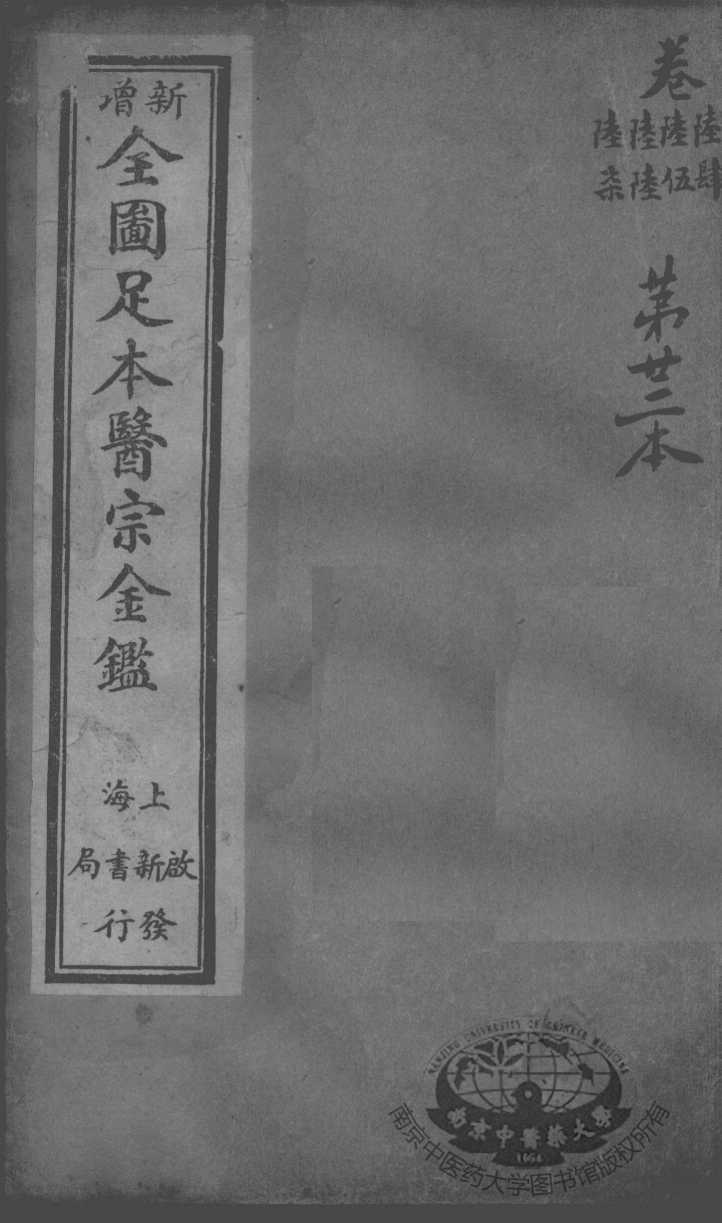 卷
陸肆
陸伍
陸陸
陸柒
第廿二本
新增
全圖足本醫宗金鑑
上海
啟新書局
發行
NANJING UNIVERSITY OF CHINESE MEDICINE
南京中醫藥大學
1954
南京中医药大学图书馆版权所有